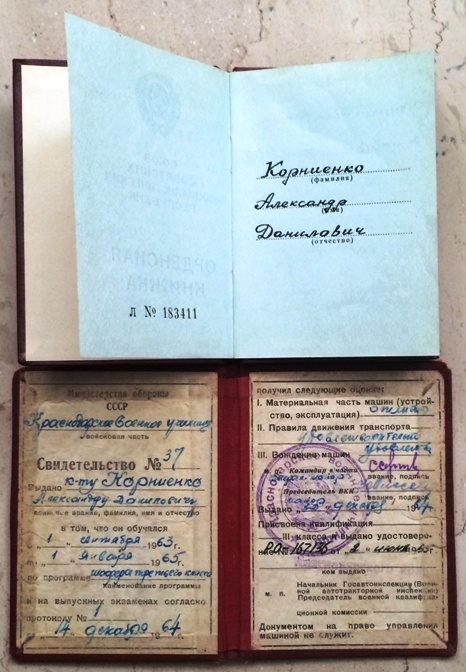 Корниенко
(фамилия)
Александр
Данилович
(отчество)
ОРДЕНСКАЯ
КНИЖКА
Л № 183411
Министерство обороны
СССР
Краснодарское Военное училище
войсковая часть
Свидетельство № 37
Выдано к-ту Корниенко
Александру Даниловичу
воинское звание, фамилия, имя и отчество
в том, что он обучался
с „1“ сентября 1963 г.
по „1“ января 1965 г.
по программе шофера третьего класса
наименование программы
и на выпускных экзаменах согласно
протоколу № 1
14 декабря 1964
получил следующие оценки:
I. Материальная часть машин (устрой-
ство, эксплуатация) отлично
II. Правила движения транспорта
удовлетворительно
III. Вождение машин
м. п. Командир части
звание, подпись
Председатель ВКК
звание, подпись
Выдано декабря
Присвоена квалификация
III класса и выдано удостовере-
ние
кем выдано
Начальник Госавтоинспекции (Воен-
ной автотракторной инспекции)
м. п. Председатель военной квалифика-
ционной комиссии
Документом на право управления
машиной не служит.